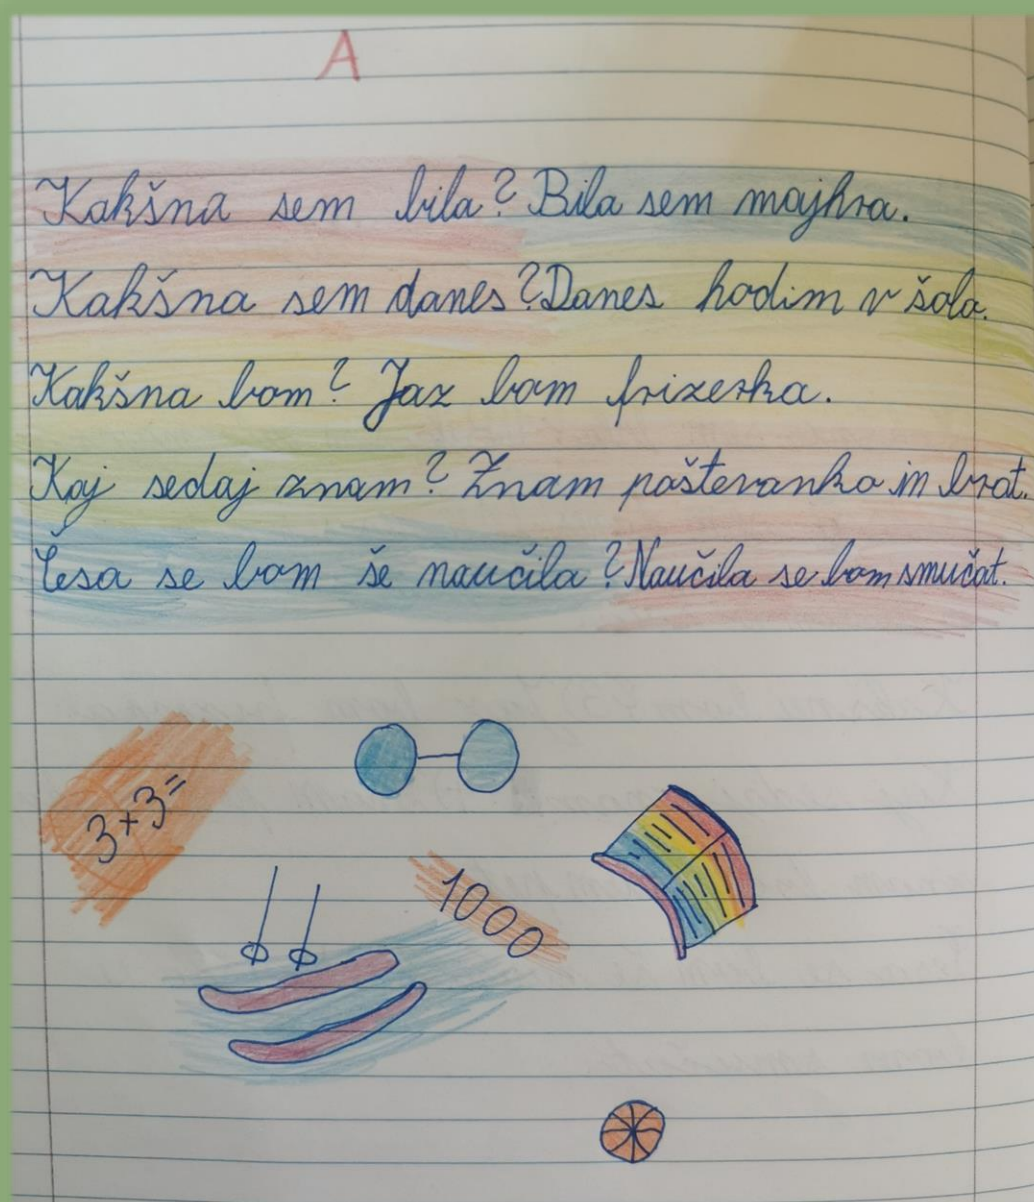 A
Kakšna sem bila? Bila sem majhna.
Kakšna sem danes? Danes hodim v šolo.
Kakšna bom? Jaz bom frizerka.
Kaj sedaj znam? Znam poštevanko in brat.
Česa se bom še naučila? Naučila se bom smučat.
3×3=
1000